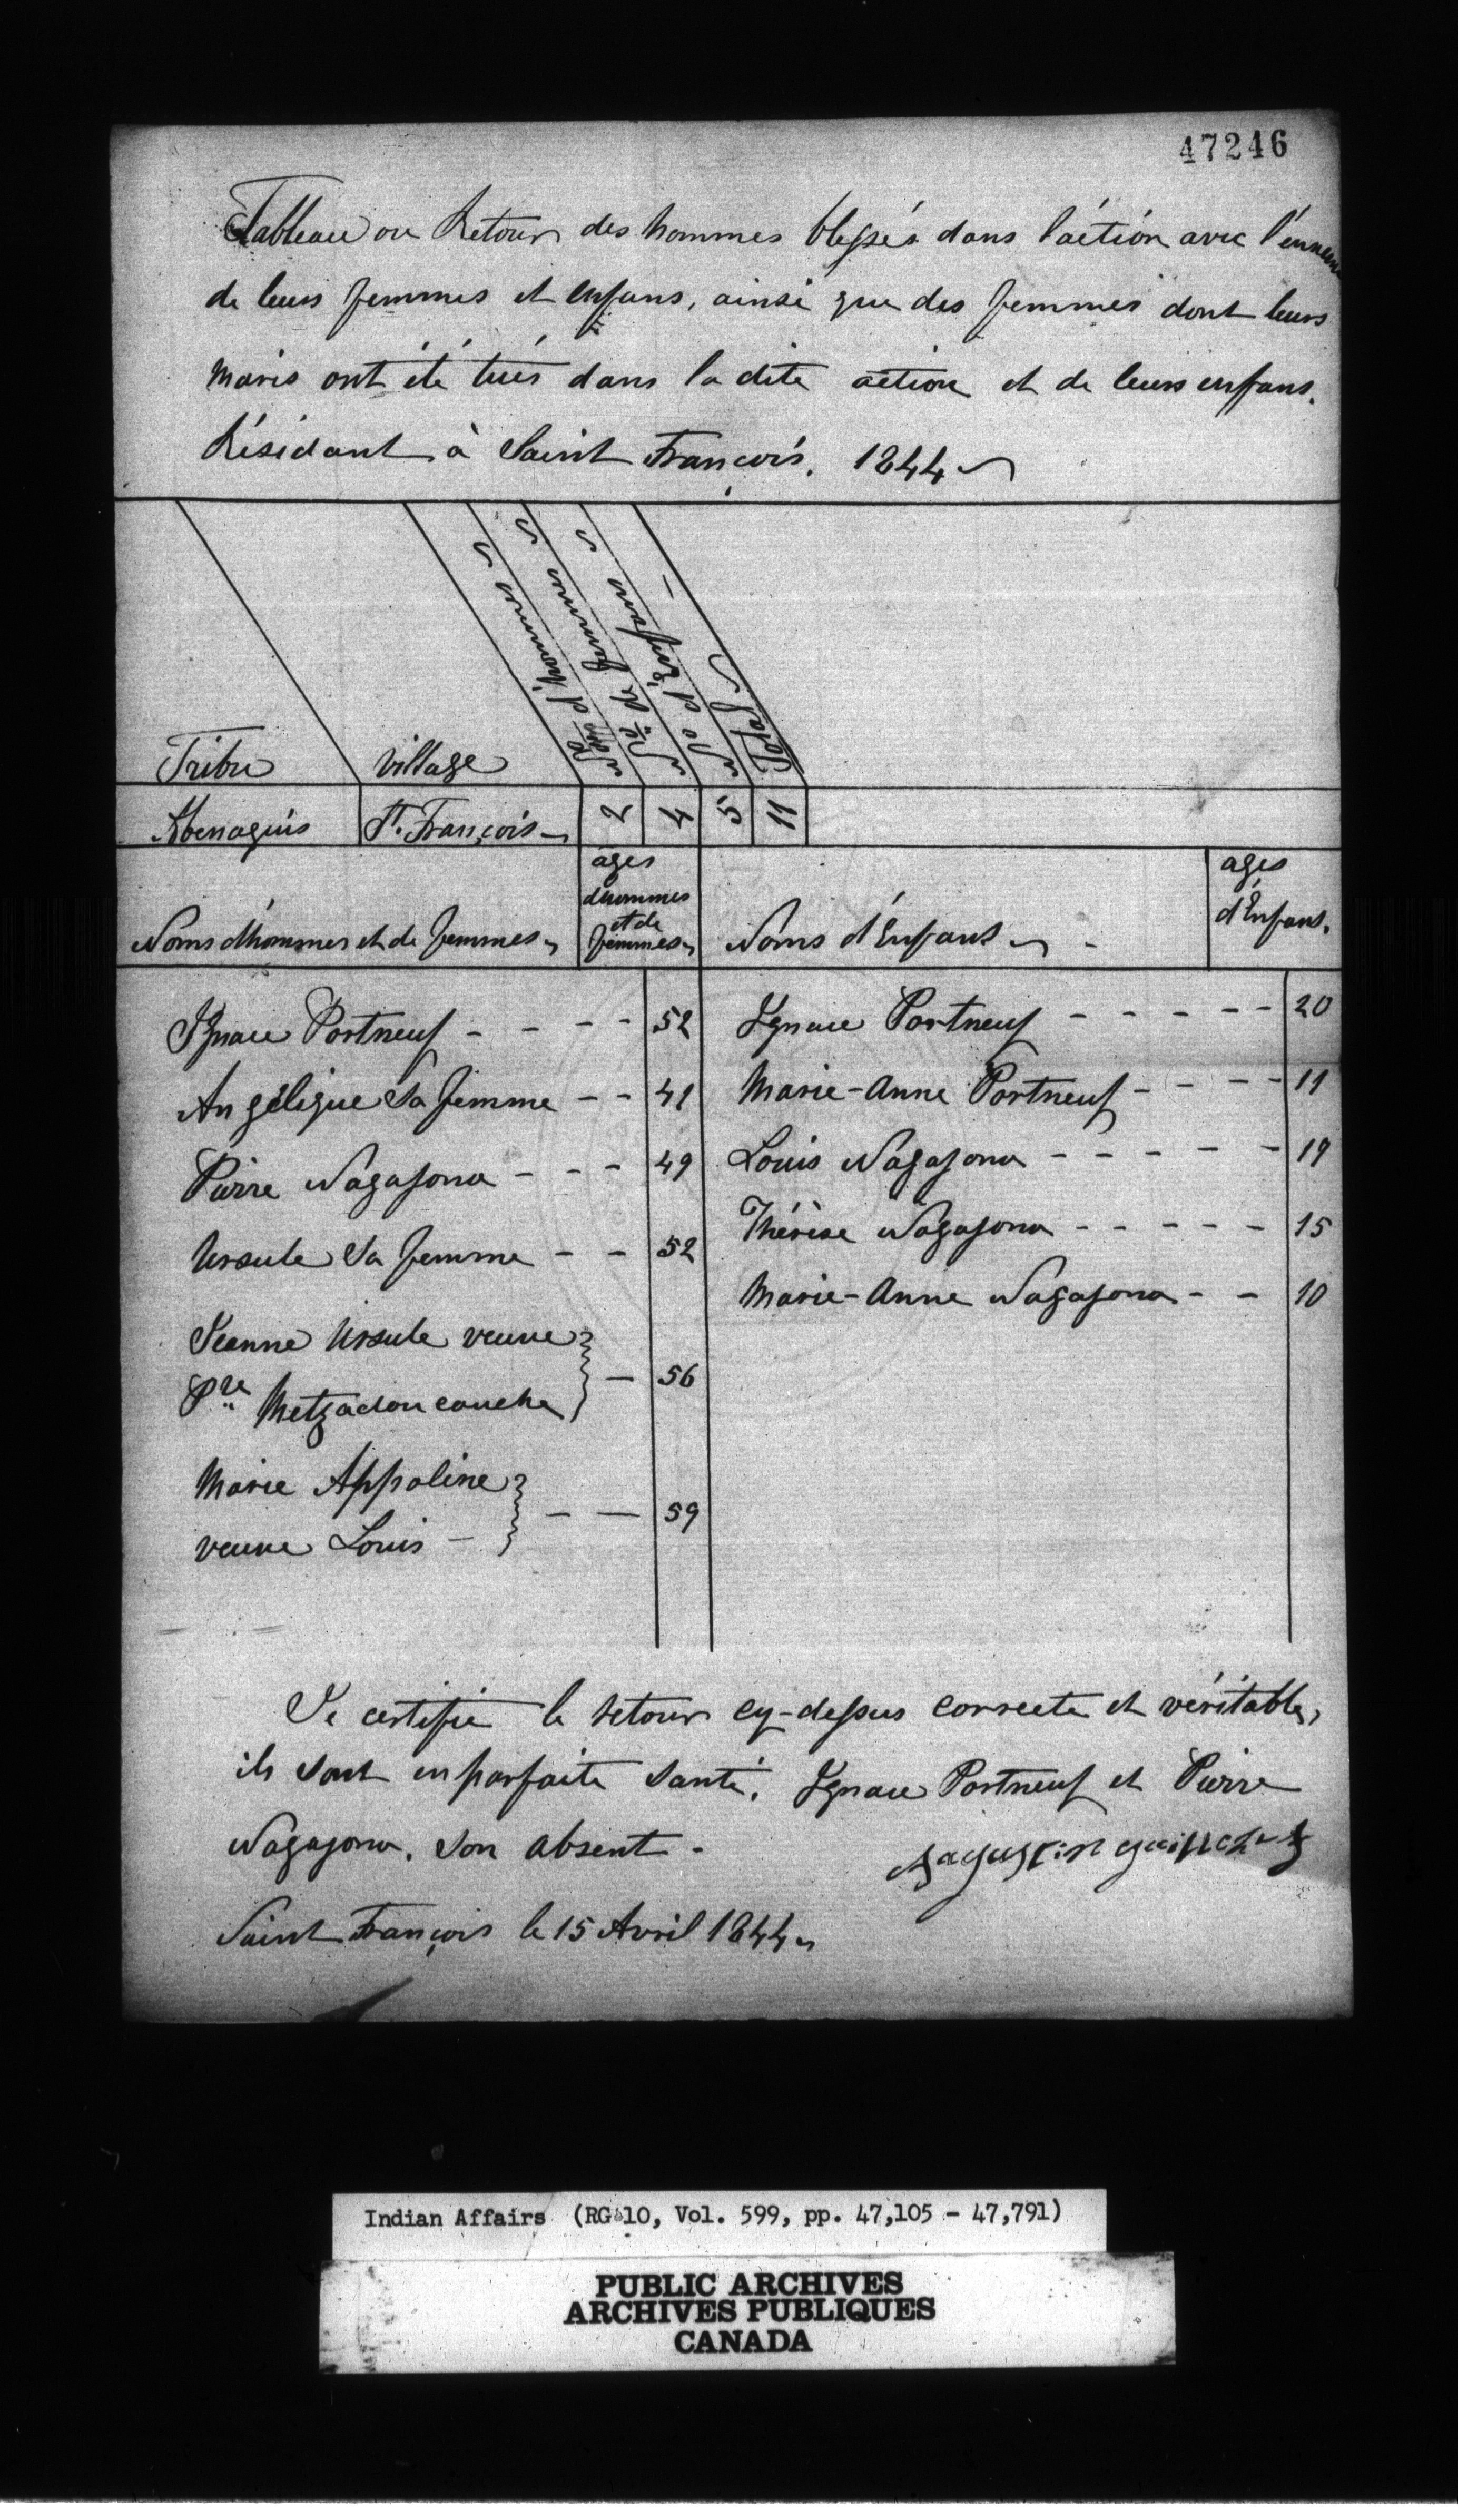 47246
Tableau ou Retour des hommes blessés dans l'action avec l'ennemi
de leurs femmes et enfans, ainsi que des femmes dont leurs
maris ont été tués dans la dite action et de leurs enfans.
Résidant à Saint François. 1844
Tribu village No d'hommes No de femmes No d'Enfans Total
Abenaquis St. François 2 4 5 11
Noms d'hommes et de femmes ages d'hommes et de femmes Noms d'Enfans ages d'Enfans.
Ignace Portneuf - - - - 52 Ignace Portneuf - - - - - 20
Angélique Sa femme - - 41 Marie-Anne Portneuf - - - - 11
Pierre Nagajoua - - - 49 Louis Nagajoua - - - - - 19
Ursule Sa femme - - 52 Thérèse Nagajoua - - - - - 15
Marie-Anne Nagajoua - - 10
Jeanne Ursule veuve
Pre Metzadoucauche } - 56
Marie Appoline
veuve Louis - } - - 59
Je certifie le retour cy-dessus correcte et véritable,
ils sont en parfaite santé. Ignace Portneuf et Pierre
Nagajoua. son absent -
Saint François le 15 Avril 1844
Indian Affairs (RG 10, Vol. 599, pp. 47,105 - 47,791)
PUBLIC ARCHIVES
ARCHIVES PUBLIQUES
CANADA